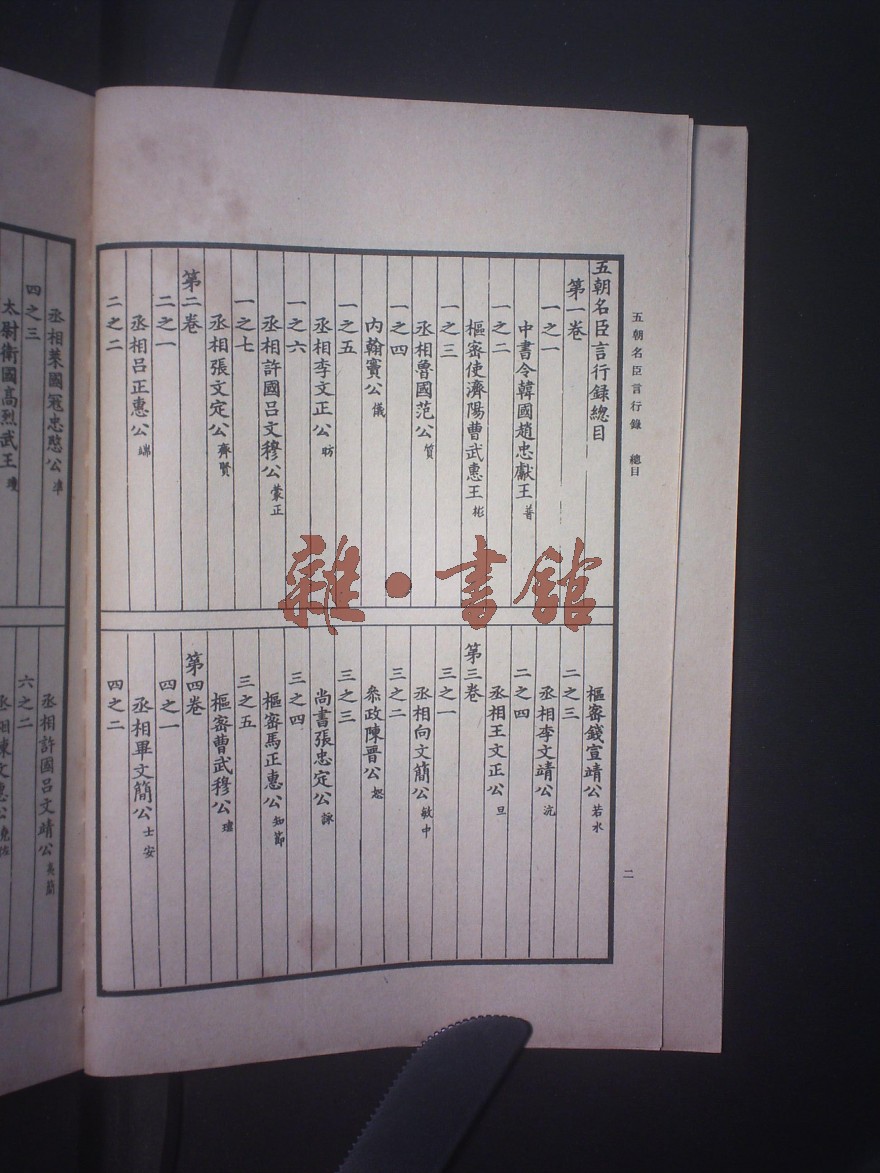 五朝名臣言行錄 總目
二
五朝名臣言行録總目
第一卷
一之一
中書令韓國趙忠獻王 普
一之二
樞密使濟陽曹武惠王 彬
一之三
丞相魯國范公 質
一之四
內翰竇公 儀
一之五
丞相李文正公 昉
一之六
丞相許國吕文穆公 蒙正
一之七
丞相張文定公 齊賢
第二卷
二之一
丞相吕正惠公 端
二之二
樞密錢宣靖公 若水
二之三
丞相李文靖公 沆
二之四
丞相王文正公 旦
第三卷
三之一
丞相向文簡公 敏中
三之二
叅政陳晋公 恕
三之三
尚書張忠定公 詠
三之四
樞密馬正惠公 知節
三之五
樞密曹武穆公 瑋
第四卷
四之一
丞相畢文簡公 士安
四之二
丞相萊國寇忠愍公 準
四之三
太尉衛國高烈武王 瓊
丞相許國吕文靖公 夷簡
六之二
丞相陳文惠公 堯佐
雜·書館